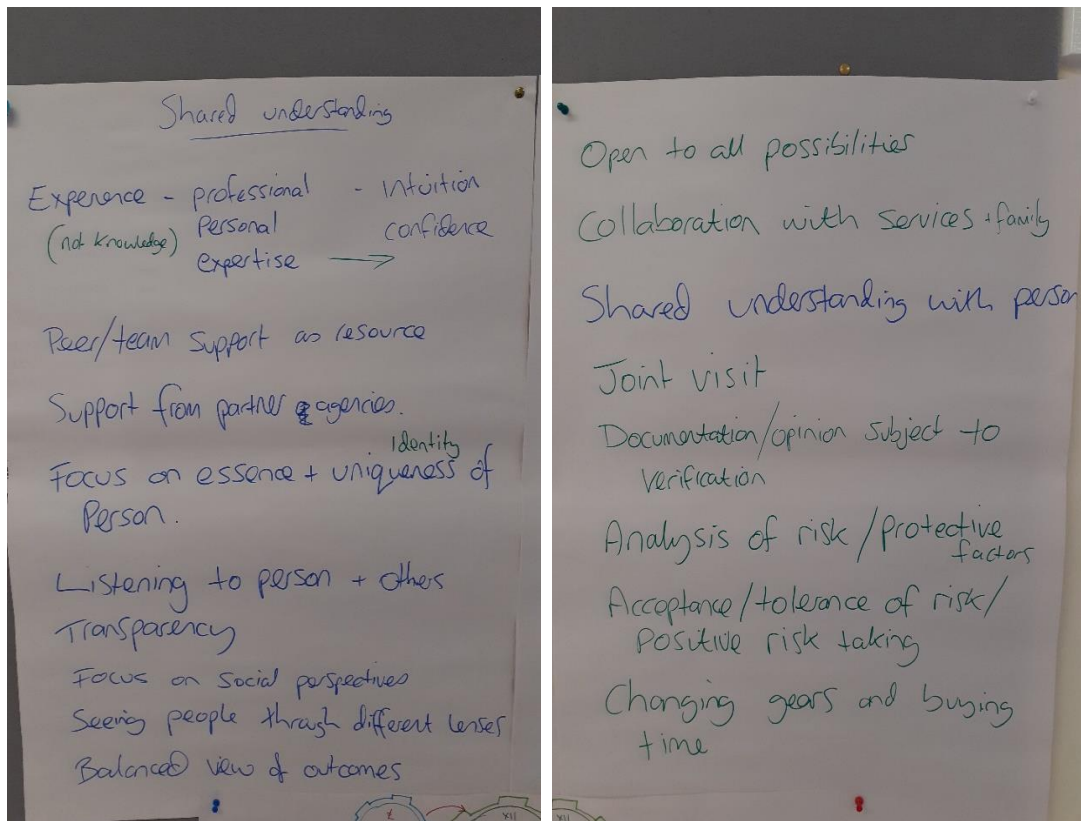 Shared understanding
Experience - professional - intuition
(not knowledge) personal confidence
expertise →
Peer/team support as resource
Support from partner agencies.
Identity
Focus on essence + uniqueness of
Person.
Listening to person + others
Transparency
Focus on social perspectives
Seeing people through different lenses
Balanced view of outcomes
X XII
Open to all possibilities
Collaboration with services + family
Shared understanding with person
Joint visit
Documentation/opinion subject to
verification
Analysis of risk/protective
factors
Acceptance/tolerance of risk/
positive risk taking
Changing gears and buying
time
XII